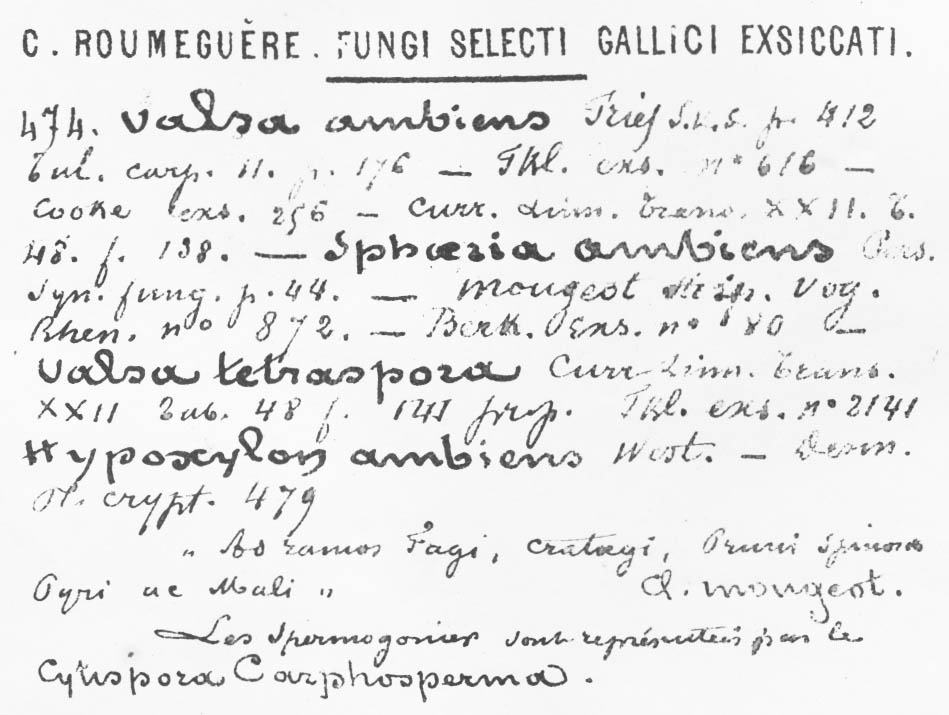 C. ROUMEGUÈRE. FUNGI SELECTI GALLICI EXSICCATI.
474. Valsa ambiens Fries S.v.S. p. 412
Tul. carp. II. p. 176 — Fkl. exs. n° 616 —
Cooke exs. 256 — Curr. Linn. Trans. XXII. T.
48. f. 138. — Sphæria ambiens Pers.
Syn. fung. p. 44. — Mougeot Stirp. Vog.
Rhen. n° 872. — Berk. Exs. n° 80 —
Valsa tetraspora Curr Linn. Trans.
XXII Tab. 48 f. 141 prp. Fkl. exs. n° 2141
Hypoxylon ambiens West. — Desm.
Pl. crypt. 479
„ Ad ramos Fagi, Cratægi, Pruni Spinosæ
Pyri ac Mali „ A. Mougeot.
Les Spermogonies sont représentées par le
Cytispora Carphosperma.